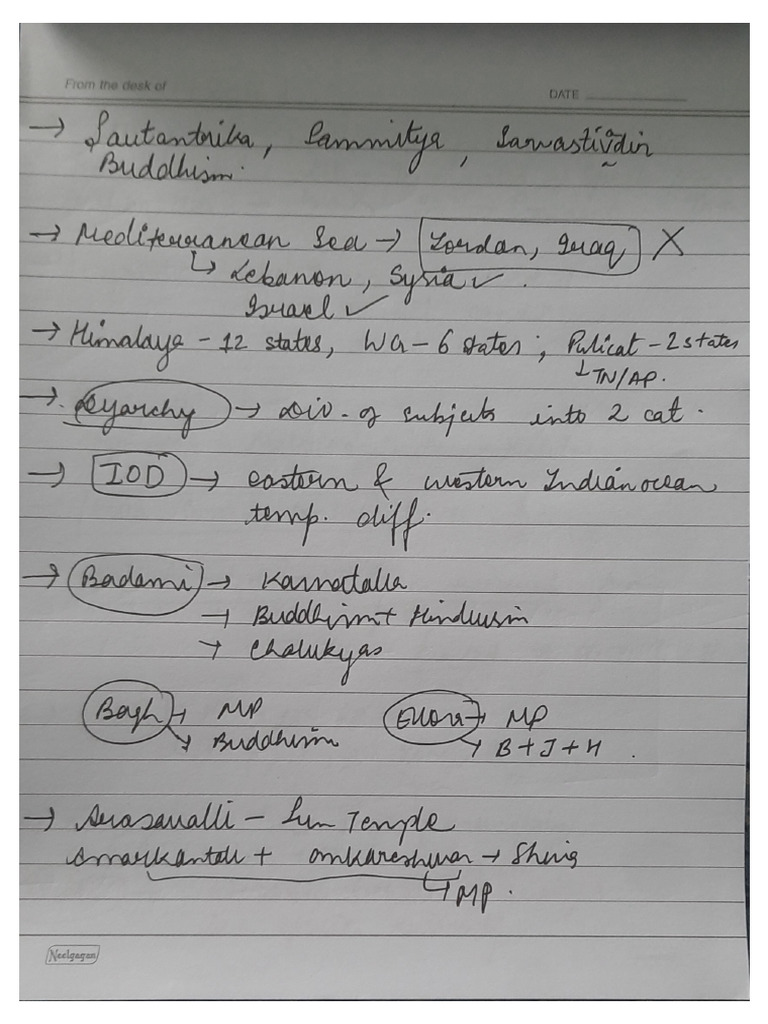 From the desk of
DATE
→ Sautantrika, Sammitya, Sarvastivādin
Buddhism.
→ Mediterranean Sea → Jordan, Iraq X
↳ Lebanon, Syria ✓.
Israel ✓
→ Himalaya - 12 states, WG - 6 states; Pulicat - 2 states
↳ TN/AP.
→ Dyarchy → Div. of subjects into 2 cat.
→ IOD → eastern & western Indian ocean
temp. diff.
→ Badami → Karnataka
→ Buddhism + Hinduism
→ Chalukyas
Bagh → MP Ellora → MP
→ Buddhism → B + J + H.
→ Arasavalli - Sun Temple
Amarkantak + Omkareshwar → Shiva
↳ MP.
Neelgagan